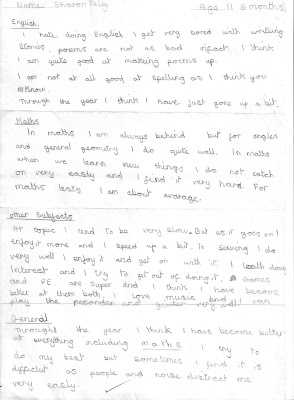 Name Sharon Age 11 6 months.
English.
I hate doing English I get very bored with writting
stories, poems are not as bad infact, I think
I am quite good at makeing poems up.
I am not at all good at spelling as I think you
all know.
Through the year I think I have just gone up a bit.
Maths
In maths I am always behind but for angles
and general geometry I do quite well. In maths
when we learn new things I do not catch
on very easily and I find it very hard. For
maths tests I am about avarage.
other Subjects
At topic I used to be very slow. But as it goes on I
enjoy it more and I speed up a bit. In sewing I do
very well I enjoy it and get on with it. I loath doing
Interest and I try to get out of doing it. Games
and PE are super and I think I have become
better at them both. I love music and I can
play the recorder and guitar very well.
General
Throught the year I think I have become better
at everything including maths I try to
do my best but sometimes I find it is
difficult as people and noise distract me
very easily.